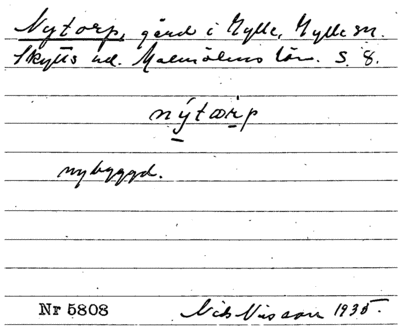 Nytorp, gård i Hylle, Hylle sn.
Skytts hd. Malmöhus län. S. 8.
nýtorp
nybyggd.
Nr 5808 Nils Nilsson 1935.